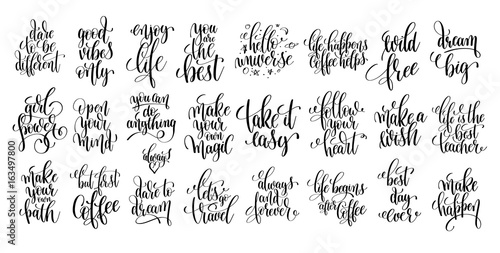 dare
to be
different
good
vibes
only
enjoy
life
you
are
the
best
hello
universe
life happens
coffee helps
wild
free
dream
big
girl
power
open
your
mind
you can
do
anything
always!
make
your
own
magic
take it
easy
follow
your
heart
make a
wish
life is the
best
teacher
make
your
own
path
but first
coffee
dare to
dream
let's
go
travel
always
and
forever
life begins
after
coffee
best
day
ever
make
it
happen
163497800